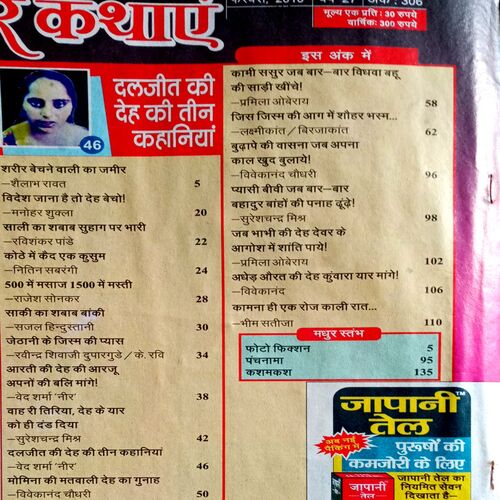 र कथाएं
फरवरी, 2018 वर्ष 27 अंक : 306
मूल्य एक प्रति : 30 रुपये
वार्षिक: 300 रुपये
दलजीत की
देह की तीन
कहानियां
46
शरीर बेचने वाली का जमीर
–शैलाभ रावत 5
विदेश जाना है तो देह बेचो!
–मनोहर शुक्ला 20
साली का शबाब सुहाग पर भारी
–रविशंकर पांडे 22
कोठे में कैद एक कुसुम
–नितिन सबरंगी 24
500 में मसाज 1500 में मस्ती
–राजेश सोनकर 28
साकी का शबाब बाकी
–सजल हिन्दुस्तानी 30
जेठानी के जिस्म की प्यास
–रवीन्द्र शिवाजी दुपारगुडे / के. रवि 34
आरती की देह की आरजू
अपनों की बलि मांगे!
–वेद शर्मा 'नीर' 38
वाह री तिरिया, देह के यार
को ही दंड दिया
–सुरेशचन्द्र मिश्र 42
दलजीत की देह की तीन कहानियां
–वेद शर्मा 'नीर' 46
मोमिना की मतवाली देह का गुनाह
–विवेकानंद चौधरी 50
इस अंक में
कामी ससुर जब बार–बार विधवा बहू
की साड़ी खींचे!
–प्रमिला ओबेराय 58
जिस जिस्म की आग में शौहर भस्म...
–लक्ष्मीकांत / बिरजाकांत 62
बुढ़ापे की वासना जब अपना
काल खुद बुलाये!
–विवेकानंद चौधरी 96
प्यासी बीवी जब बार–बार
बहादुर बांहों की पनाह ढूंढ़े!
–सुरेशचन्द्र मिश्र 98
जब भाभी की देह देवर के
आगोश में शांति पाये!
–प्रमिला ओबेराय 102
अधेड़ औरत की देह कुंवारा यार मांगे!
–विवेकानंद 106
कामना ही एक रोज काली रात...
–भीम सतीजा 110
मधुर स्तंभ
फोटो फिक्शन 5
पंचनामा 95
कशमकश 135
जापानी
तेल
TM
अब नई
पैकिंग में
पुरूषों की
कमजोरी के लिए
जापानी
तेल
जापानी तेल का
नियमित सेवन
दिखाता है–